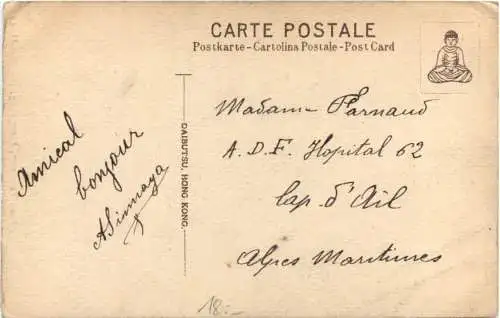 CARTE POSTALE
Postkarte - Cartolina Postale - Post Card
DAIBUTSU, HONG KONG.
Amical
bonjour
Madame Farnaud
A.D.F. Hopital 62
Cap d'Ail
Alpes Maritimes
18.-